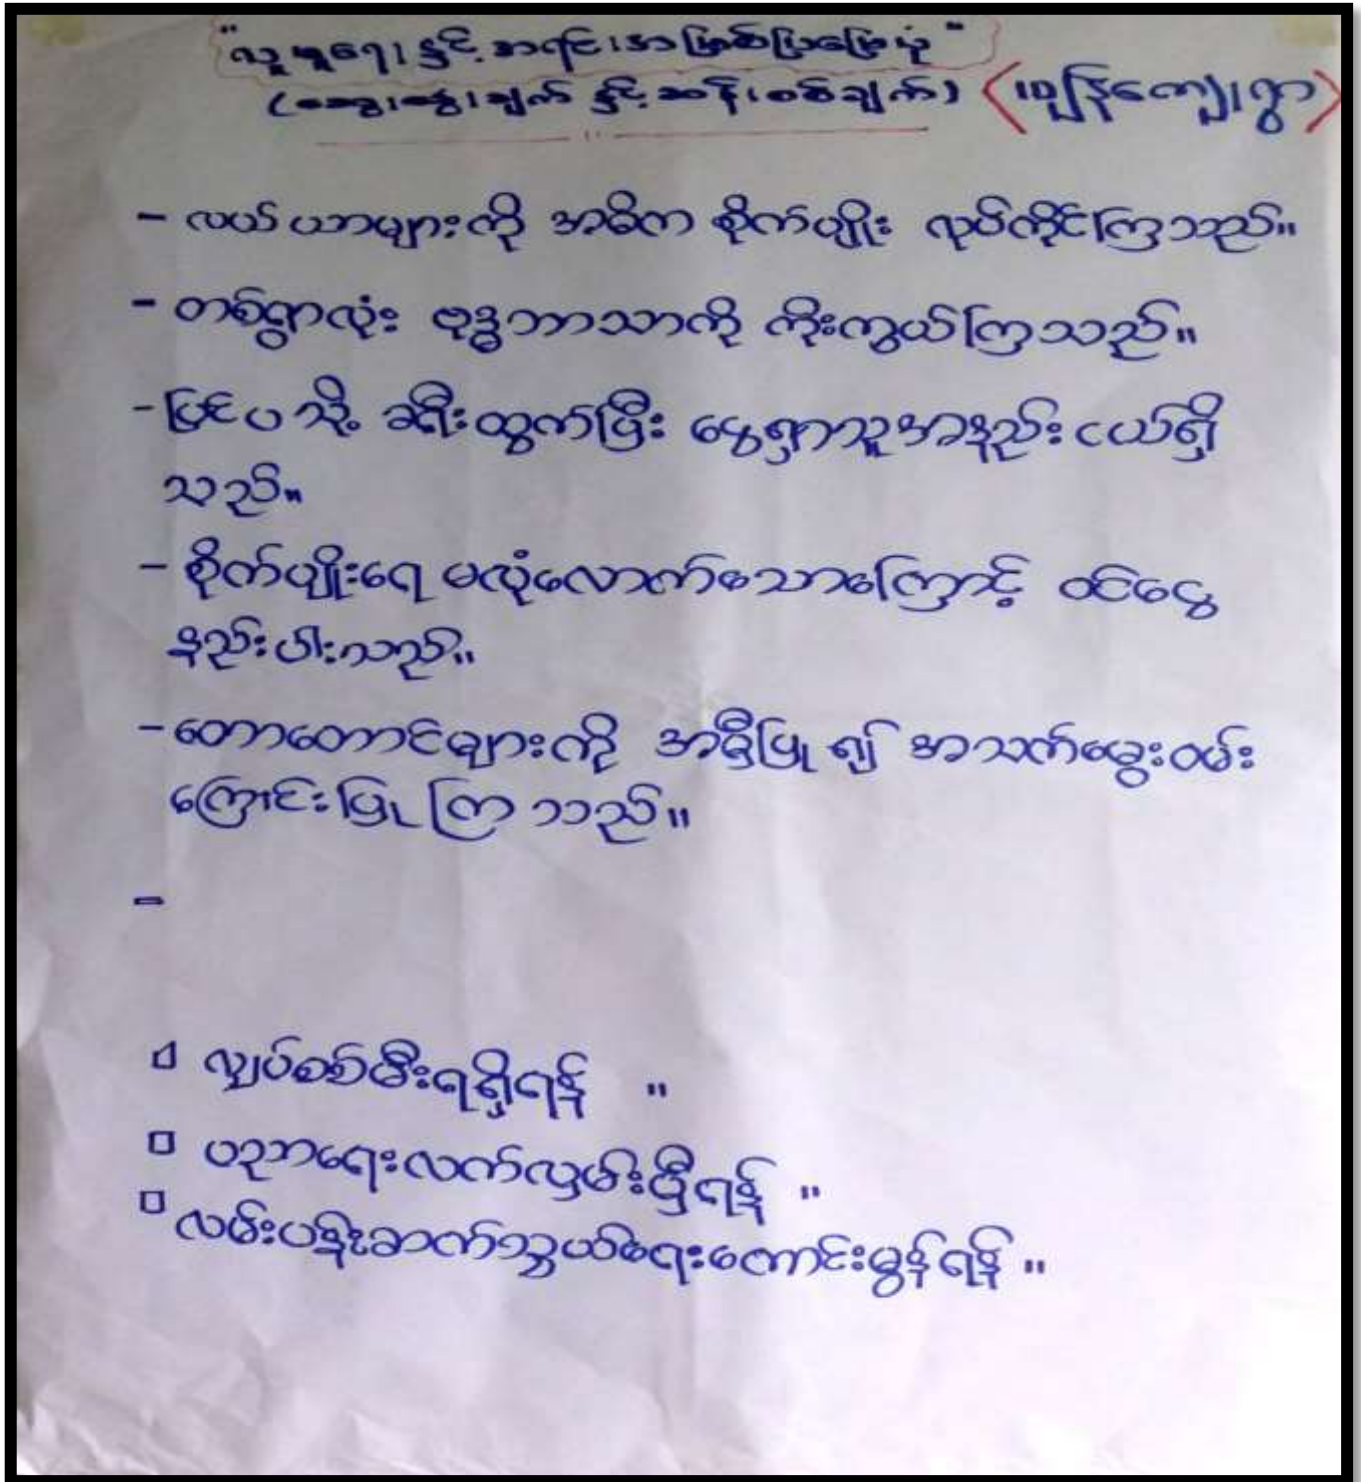 "လူမှုရေး နှင့် အရင်းအမြစ်ပြမြေပုံ"
(ဆွေးနွေးချက် နှင့် ဆန်းစစ်ချက်)
- လယ်ယာများကို အဓိက စိုက်ပျိုး လုပ်ကိုင်ကြသည်။
- တစ်ရွာလုံး ဗုဒ္ဓဘာသာကို ကိုးကွယ်ကြသည်။
- ပြင်ပသို့ ခရီးထွက်ပြီး ငွေရှာသူအနည်းငယ်ရှိ
သည်။
- စိုက်ပျိုးရေ မလုံလောက်သောကြောင့် ဝင်ငွေ
နည်းပါးသည်။
- တောတောင်များကို အမှီပြု၍ အသက်မွေးဝမ်း
ကြောင်းပြုကြသည်။
-
□ လျှပ်စစ်မီးရရှိရန် ။
□ ပညာရေးလက်လှမ်းမှီရန် ။
□ လမ်းပန်းဆက်သွယ်ရေးကောင်းမွန်ရန် ။